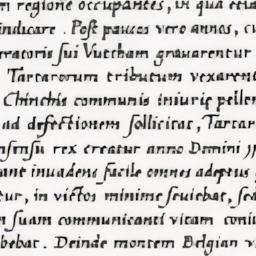 m regione occupantes, in qua etia
indicare. Post paucos vero annos, cu
eratoris sui Vutcham grauarentur
Tartarorum tributum vexarent
Chinchis communis iniuriæ pellen
ad defectionem sollicitat, Tartar
rex creatur anno Domini
ane inuadens facile omnes adeptus
tur, in victos minime seuiebat, sed
n suam communicanti vitam coniu
bebat. Deinde montem Belgian v